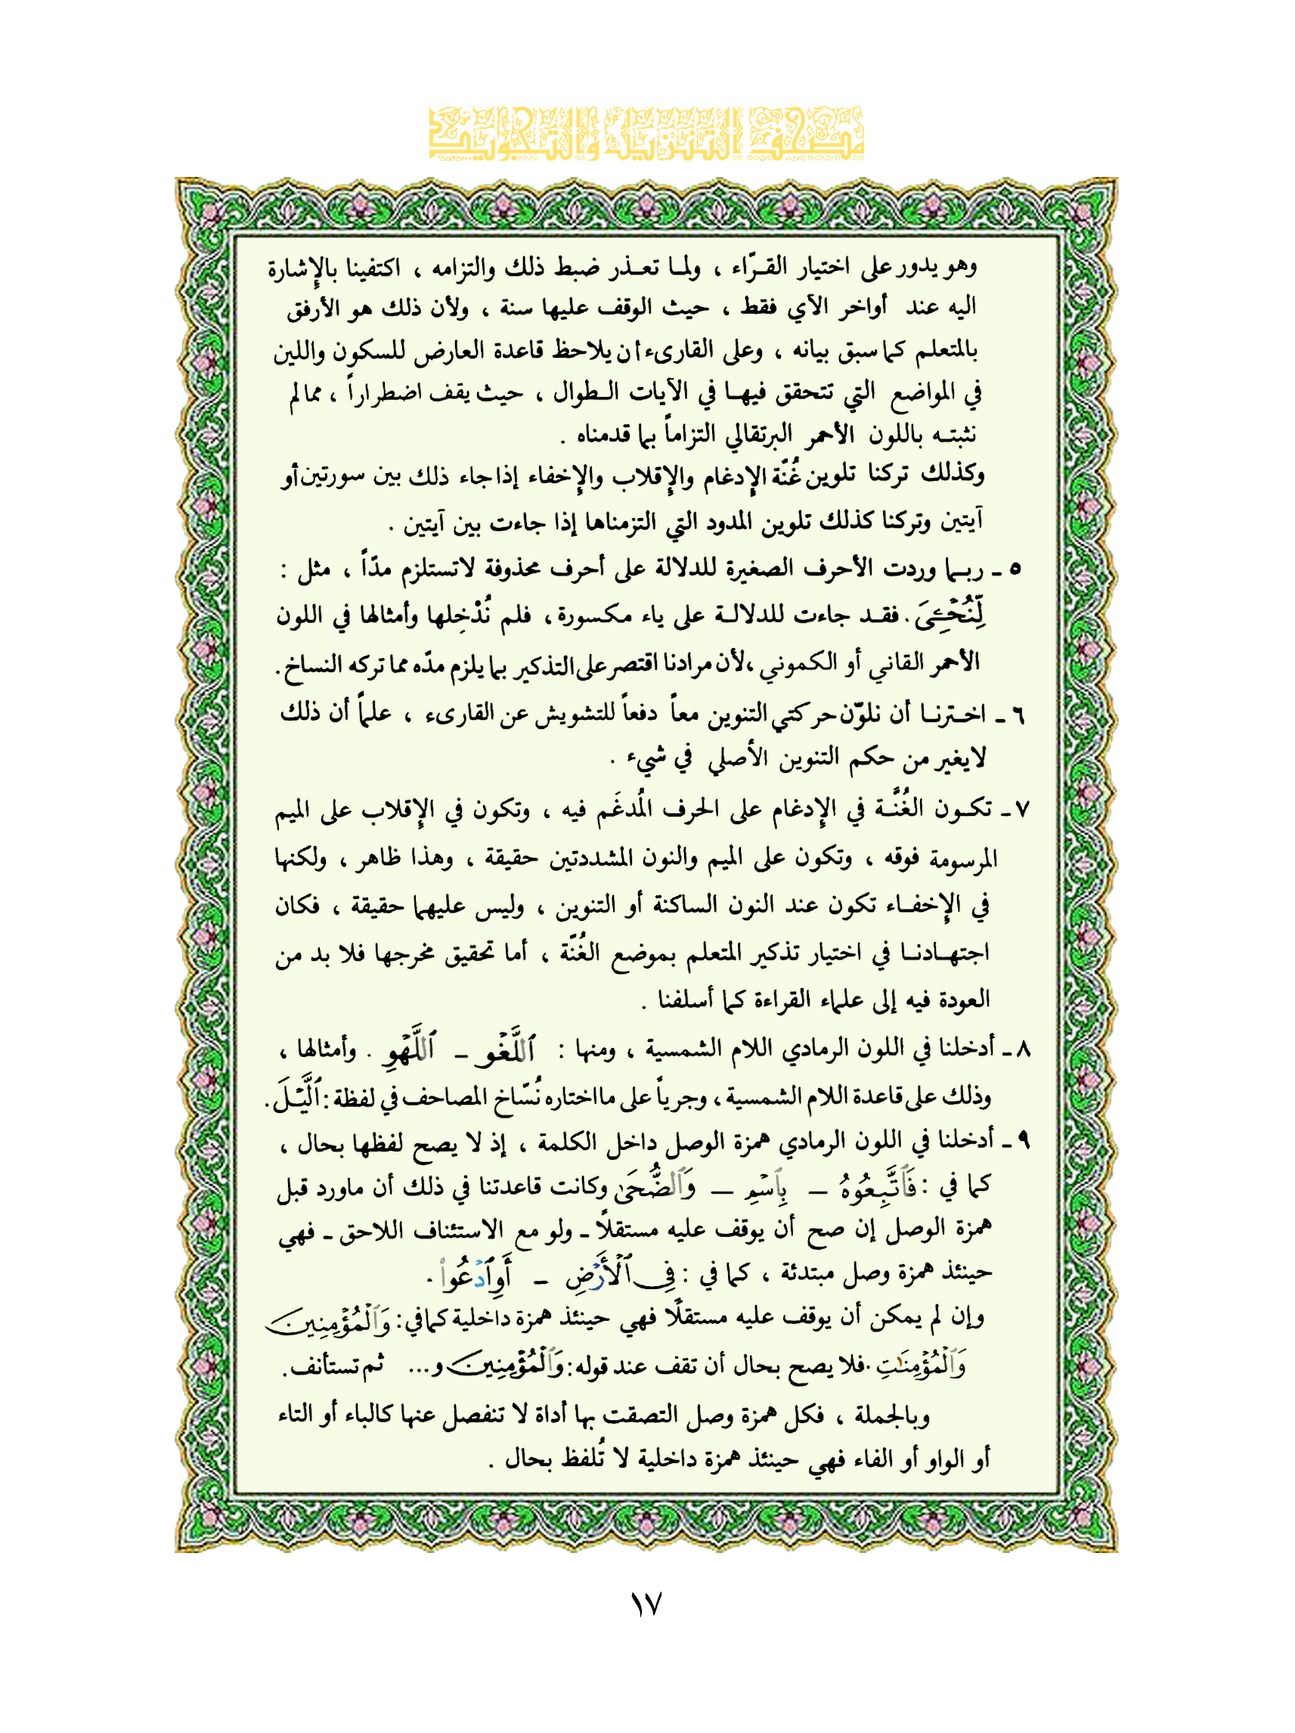 وهو يدور على اختيار القرّاء ، ولما تعذر ضبط ذلك والتزامه ، اكتفينا بالإشارة
اليه عند أواخر الآي فقط ، حيث الوقف عليها سنة ، ولأن ذلك هو الأرفق
بالمتعلم كما سبق بيانه ، وعلى القارىء أن يلاحظ قاعدة العارض للسكون واللين
في المواضع التي تتحقق فيها في الآيات الطوال ، حيث يقف اضطراراً ، مما لم
نثبته باللون الأحمر البرتقالي التزاماً بما قدمناه .
وكذلك تركنا تلوين غُنّة الإدغام والإقلاب والإخفاء إذا جاء ذلك بين سورتين أو
آيتين وتركنا كذلك تلوين المدود التي التزمناها إذا جاءت بين آيتين .
٥ ـ ربما وردت الأحرف الصغيرة للدلالة على أحرف محذوفة لا تستلزم مدّاً ، مثل :
لِّنُحْـِۧىَ . فقد جاءت للدلالة على ياء مكسورة ، فلم نُدْخِلها وأمثالها في اللون
الأحمر القاني أو الكموني ، لأن مرادنا اقتصر على التذكير بما يلزم مدّه مما تركه النساخ .
٦ ـ اخترنا أن نلوّن حركتي التنوين معاً دفعاً للتشويش عن القارىء ، علماً أن ذلك
لا يغير من حكم التنوين الأصلي في شيء .
٧ ـ تكون الغُنَّة في الإدغام على الحرف المُدغَم فيه ، وتكون في الإقلاب على الميم
المرسومة فوقه ، وتكون على الميم والنون المشددتين حقيقة ، وهذا ظاهر ، ولكنها
في الإخفاء تكون عند النون الساكنة أو التنوين ، وليس عليهما حقيقة ، فكان
اجتهادنا في اختيار تذكير المتعلم بموضع الغُنّة ، أما تحقيق مخرجها فلا بد من
العودة فيه إلى علماء القراءة كما أسلفنا .
٨ ـ أدخلنا في اللون الرمادي اللام الشمسية ، ومنها : ٱللَّغْوِ ـ ٱللَّهْوِ . وأمثالها ،
وذلك على قاعدة اللام الشمسية ، وجرياً على ما اختاره نُسّاخ المصاحف في لفظة : ٱلَّيْلَ .
٩ ـ أدخلنا في اللون الرمادي همزة الوصل داخل الكلمة ، إذ لا يصح لفظها بحال ،
كما في : فَٱتَّبِعُوهُ ـ بِٱسْمِ ـ وَٱلضُّحَىٰ وكانت قاعدتنا في ذلك أن ما ورد قبل
همزة الوصل إن صح أن يوقف عليه مستقلاً ـ ولو مع الاستئناف اللاحق ـ فهي
حينئذ همزة وصل مبتدئة ، كما في : فِى ٱلْأَرْضِ ـ أَوِ ٱدْعُوا .
وإن لم يمكن أن يوقف عليه مستقلًا فهي حينئذ همزة داخلية كما في : وَٱلْمُؤْمِنِينَ
وَٱلْمُؤْمِنَٰتِ . فلا يصح بحال أن تقف عند قوله : وَٱلْمُؤْمِنِينَ و ... ثم تستأنف .
وبالجملة ، فكل همزة وصل التصقت بها أداة لا تنفصل عنها كالباء أو التاء
أو الواو أو الفاء فهي حينئذ همزة داخلية لا تُلفظ بحال .
١٧